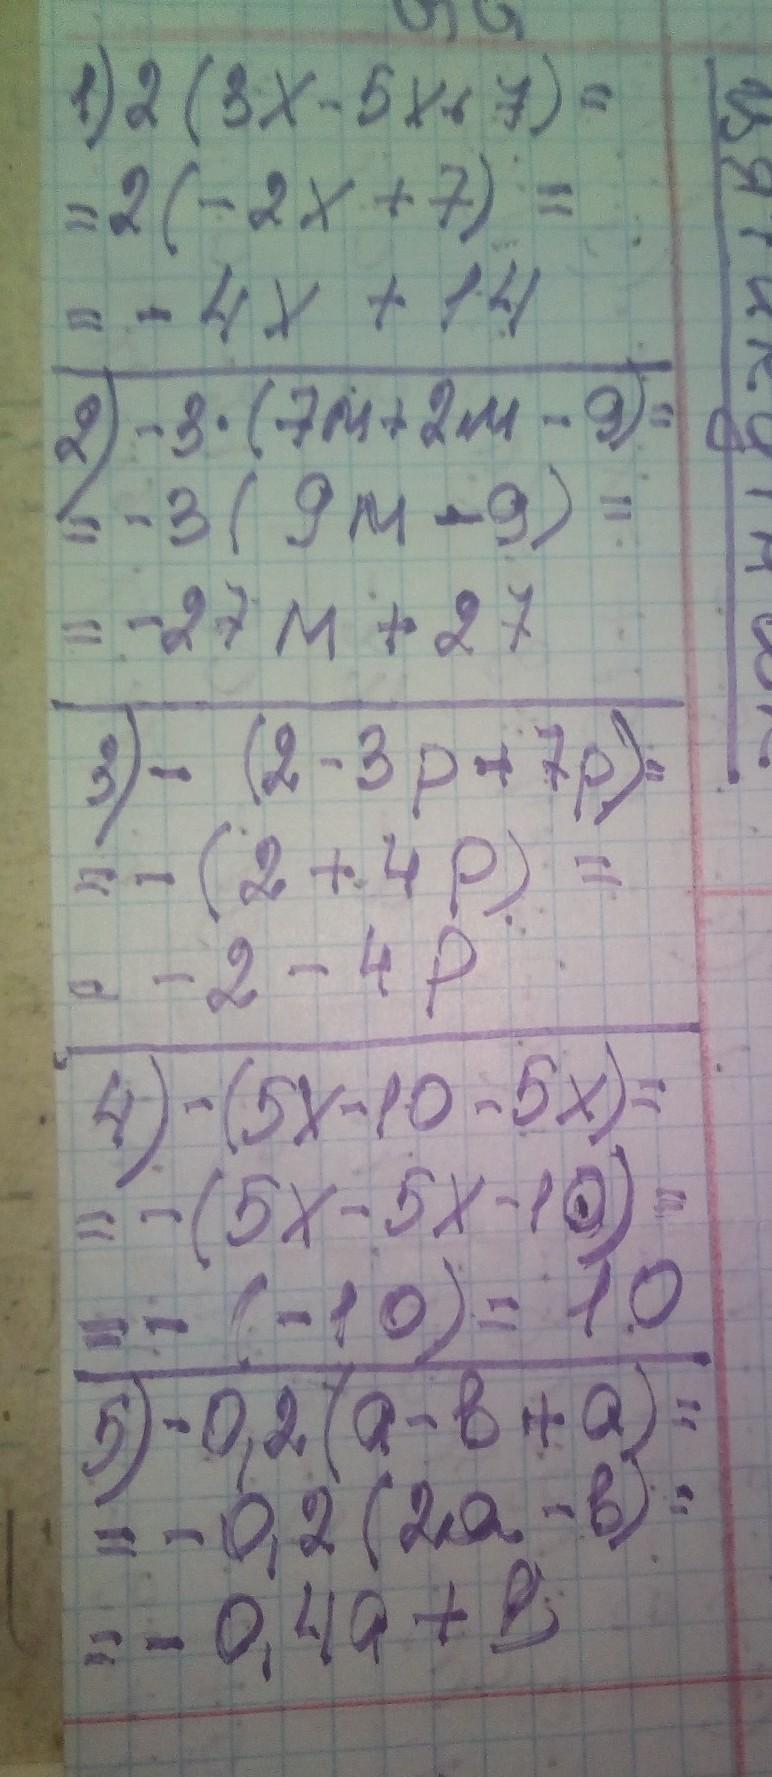 1) 2 (3x - 5x + 7) =
= 2 (- 2x + 7) =
= - 4x + 14
2) - 3 · (7м + 2м - 9) =
= - 3 ( 9м - 9) =
= - 27м + 27
3) - (2 - 3p + 7p) =
= - (2 + 4p) =
= - 2 - 4p
4) - (5x - 10 - 5x) =
= - (5x - 5x - 10) =
= - (- 10) = 10
5) - 0,2 (a - b + a) =
= - 0,2 (2a - b) =
= - 0,4a + b